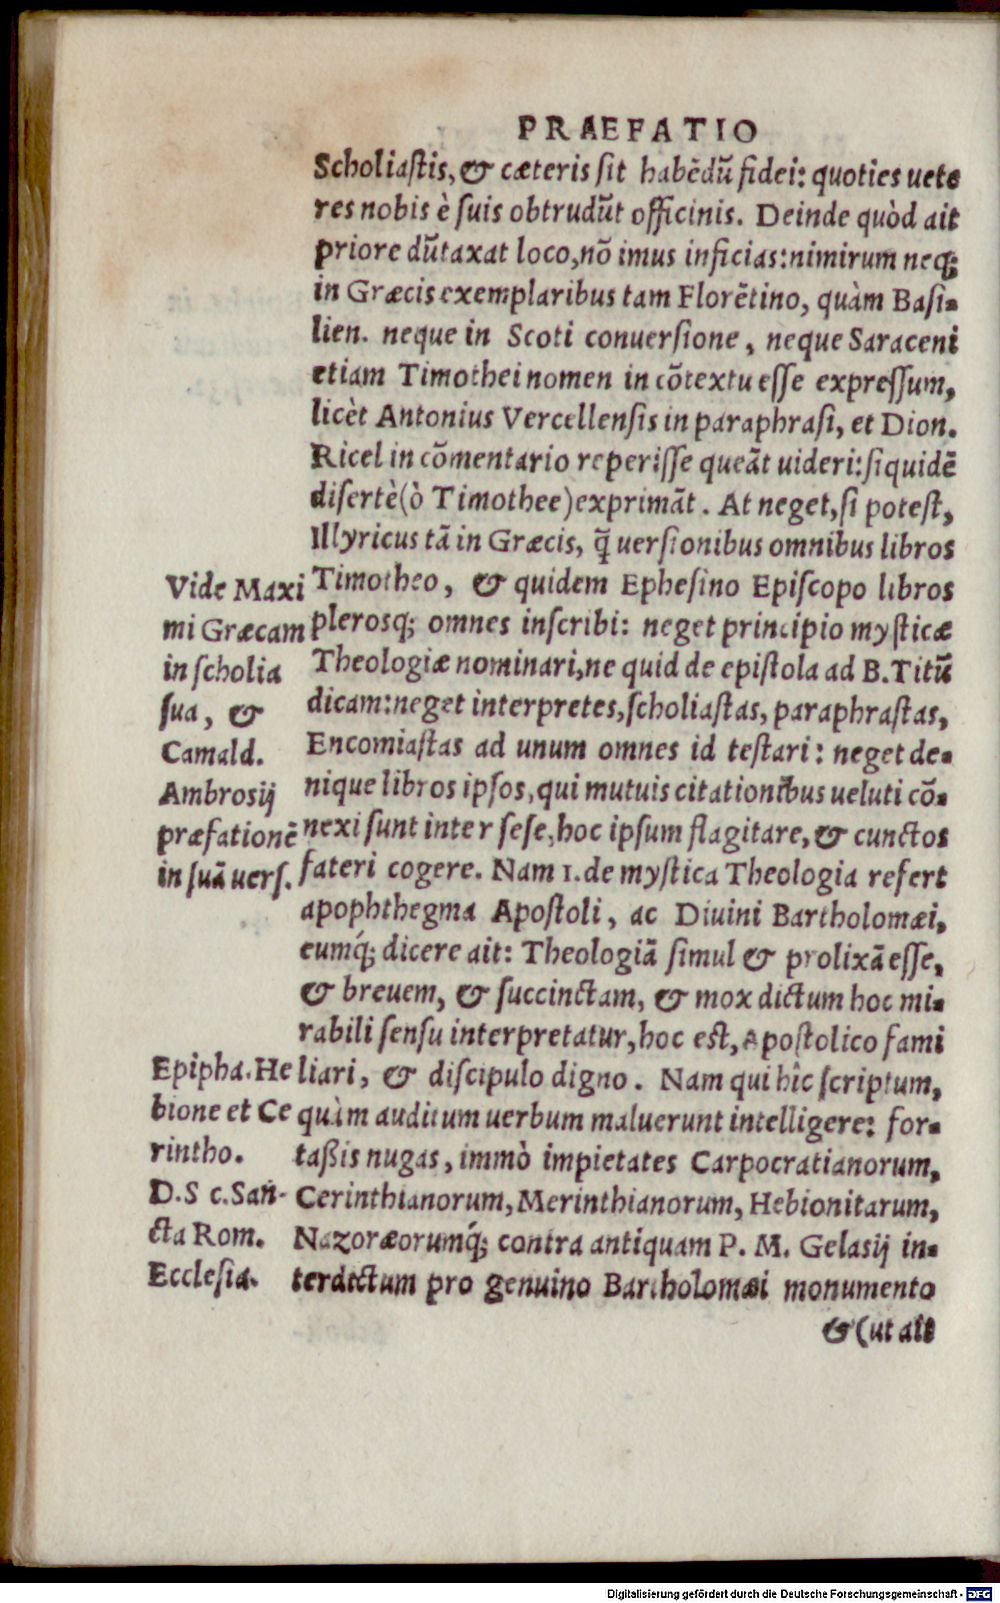 PRAEFATIO
Scholiastis, & cæteris sit habēdū fidei: quoties uete
res nobis è suis obtrudūt officinis. Deinde quòd ait
priore dūtaxat loco, nō imus inficias: nimirum neq;
in Græcis exemplaribus tam Florētino, quàm Basi-
lien. neque in Scoti conuersione, neque Saraceni
etiam Timothei nomen in cōtextu esse expressum,
licèt Antonius Vercellensis in paraphrasi, et Dion.
Ricel in cōmentario reperisse queāt uideri: siquidē
disertè (ò Timothee) exprimāt. At neget, si potest,
Illyricus tā in Græcis, q̄ uersionibus omnibus libros
Timotheo, & quidem Ephesino Episcopo libros
plerosq; omnes inscribi: neget principio mysticæ
Theologiæ nominari, ne quid de epistola ad B. Titū
dicam: neget interpretes, scholiastas, paraphrastas,
Encomiastas ad unum omnes id testari: neget de-
nique libros ipsos, qui mutuis citationibus ueluti cō-
nexi sunt inter sese, hoc ipsum flagitare, & cunctos
fateri cogere. Nam 1. de mystica Theologia refert
apophthegma Apostoli, ac Diuini Bartholomæi,
eumq́; dicere ait: Theologiā simul & prolixā esse,
& breuem, & succinctam, & mox dictum hoc mi-
rabili sensu interpretatur, hoc est, Apostolico fami
liari, & discipulo digno. Nam qui hîc scriptum,
quàm auditum uerbum maluerunt intelligere: for-
taßis nugas, immò impietates Carpocratianorum,
Cerinthianorum, Merinthianorum, Hebionitarum,
Nazoræorumq́; contra antiquam P. M. Gelasij in-
terdictum pro genuino Bartholomæi monumento
& (ut ait
Vide Maxi
mi Græcam
in scholia
sua, &
Camald.
Ambrosij
præfationē
in suā uers.
Epipha. He
bione et Ce
rintho.
D. S c. San-
cta Rom.
Ecclesia.
Digitalisierung gefördert durch die Deutsche Forschungsgemeinschaft - DFG